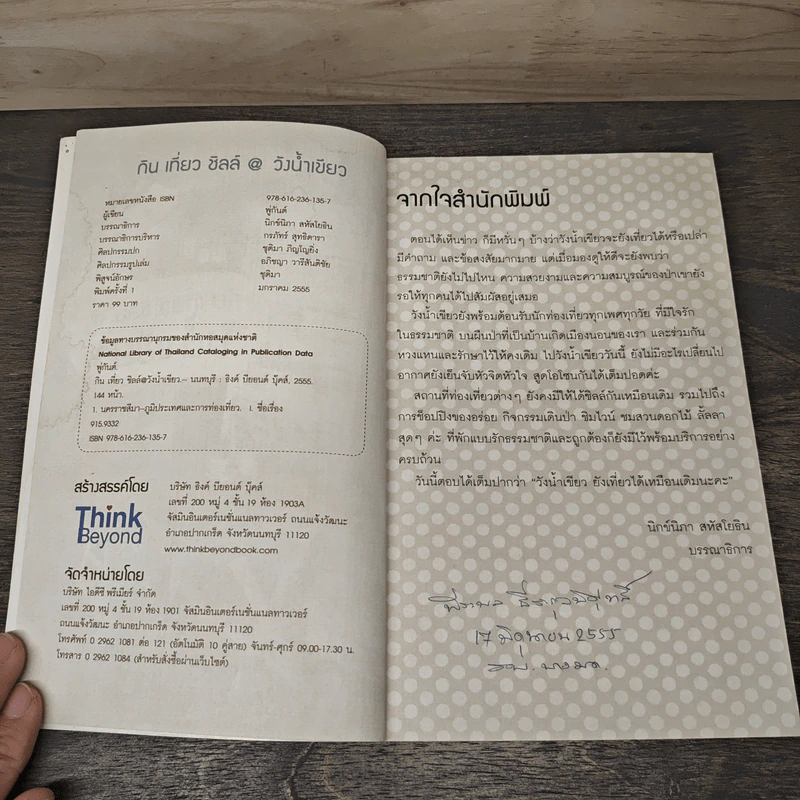 กิน เที่ยว ชิลล์ @ วังน้ำเขียว
หมายเลขหนังสือ ISBN 978-616-236-135-7
ผู้เขียน พู่กันต์
บรรณาธิการ นิกข์นิภา สหัสโยธิน
บรรณาธิการบริหาร กรภัทร์ สุทธิดารา
ศิลปกรรมปก ชุติมา ภิญโญยิ่ง
ศิลปกรรมรูปเล่ม อภิชญา วารีสันติชัย
พิสูจน์อักษร ชุติมา
พิมพ์ครั้งที่ 1 มกราคม 2555
ราคา 99 บาท
ข้อมูลทางบรรณานุกรมของสำนักหอสมุดแห่งชาติ
National Library of Thailand Cataloging in Publication Data
พู่กันต์.
กิน เที่ยว ชิลล์@วังน้ำเขียว.-- นนทบุรี : อิงค์ บียอนด์ บุ๊คส์, 2555.
144 หน้า.
1. นครราชสีมา--ภูมิประเทศและการท่องเที่ยว. I. ชื่อเรื่อง
915.9332
ISBN 978-616-236-135-7
สร้างสรรค์โดย
Think
Beyond
บริษัท อิงค์ บียอนด์ บุ๊คส์
เลขที่ 200 หมู่ 4 ชั้น 19 ห้อง 1903A
จัสมินอินเตอร์เนชั่นแนลทาวเวอร์ ถนนแจ้งวัฒนะ
อำเภอปากเกร็ด จังหวัดนนทบุรี 11120
www.thinkbeyondbook.com
จัดจำหน่ายโดย
บริษัท ไอดีซี พรีเมียร์ จำกัด
เลขที่ 200 หมู่ 4 ชั้น 19 ห้อง 1901 จัสมินอินเตอร์เนชั่นแนลทาวเวอร์
ถนนแจ้งวัฒนะ อำเภอปากเกร็ด จังหวัดนนทบุรี 11120
โทรศัพท์ 0 2962 1081 ต่อ 121 (อัตโนมัติ 10 คู่สาย) จันทร์-ศุกร์ 09.00-17.30 น.
โทรสาร 0 2962 1084 (สำหรับสั่งซื้อผ่านเว็บไซต์)
จากใจสำนักพิมพ์
ตอนได้เห็นข่าว ก็มีหวั่นๆ บ้างว่าวังน้ำเขียวจะยังเที่ยวได้หรือเปล่า
มีคำถาม และข้อสงสัยมากมาย แต่เมื่อมองดูให้ดีจะยังพบว่า
ธรรมชาติยังไม่ไปไหน ความสวยงามและความสมบูรณ์ของป่าเขายัง
รอให้ทุกคนได้ไปสัมผัสอยู่เสมอ
วังน้ำเขียวยังพร้อมต้อนรับนักท่องเที่ยวทุกเพศทุกวัย ที่มีใจรัก
ในธรรมชาติ บนผืนป่าที่เป็นบ้านเกิดเมืองนอนของเรา และร่วมกัน
หวงแหนและรักษาไว้ให้คงเดิม ไปวังน้ำเขียววันนี้ ยังไม่มีอะไรเปลี่ยนไป
อากาศยังเย็นจับหัวจิตหัวใจ สูดโอโซนกันได้เต็มปอดค่ะ
สถานที่ท่องเที่ยวต่างๆ ยังคงมีให้ได้ชิลล์กันเหมือนเดิม รวมไปถึง
การช็อปปิงของอร่อย กิจกรรมเดินป่า ชิมไวน์ ชมสวนดอกไม้ ลั้ลลา
สุดๆ ค่ะ ที่พักแบบรักธรรมชาติและถูกต้องก็ยังมีไว้พร้อมบริการอย่าง
ครบถ้วน
วันนี้ตอบได้เต็มปากว่า “วังน้ำเขียว ยังเที่ยวได้เหมือนเดิมนะคะ”
นิกข์นิภา สหัสโยธิน
บรรณาธิการ
17 มิถุนายน 2555